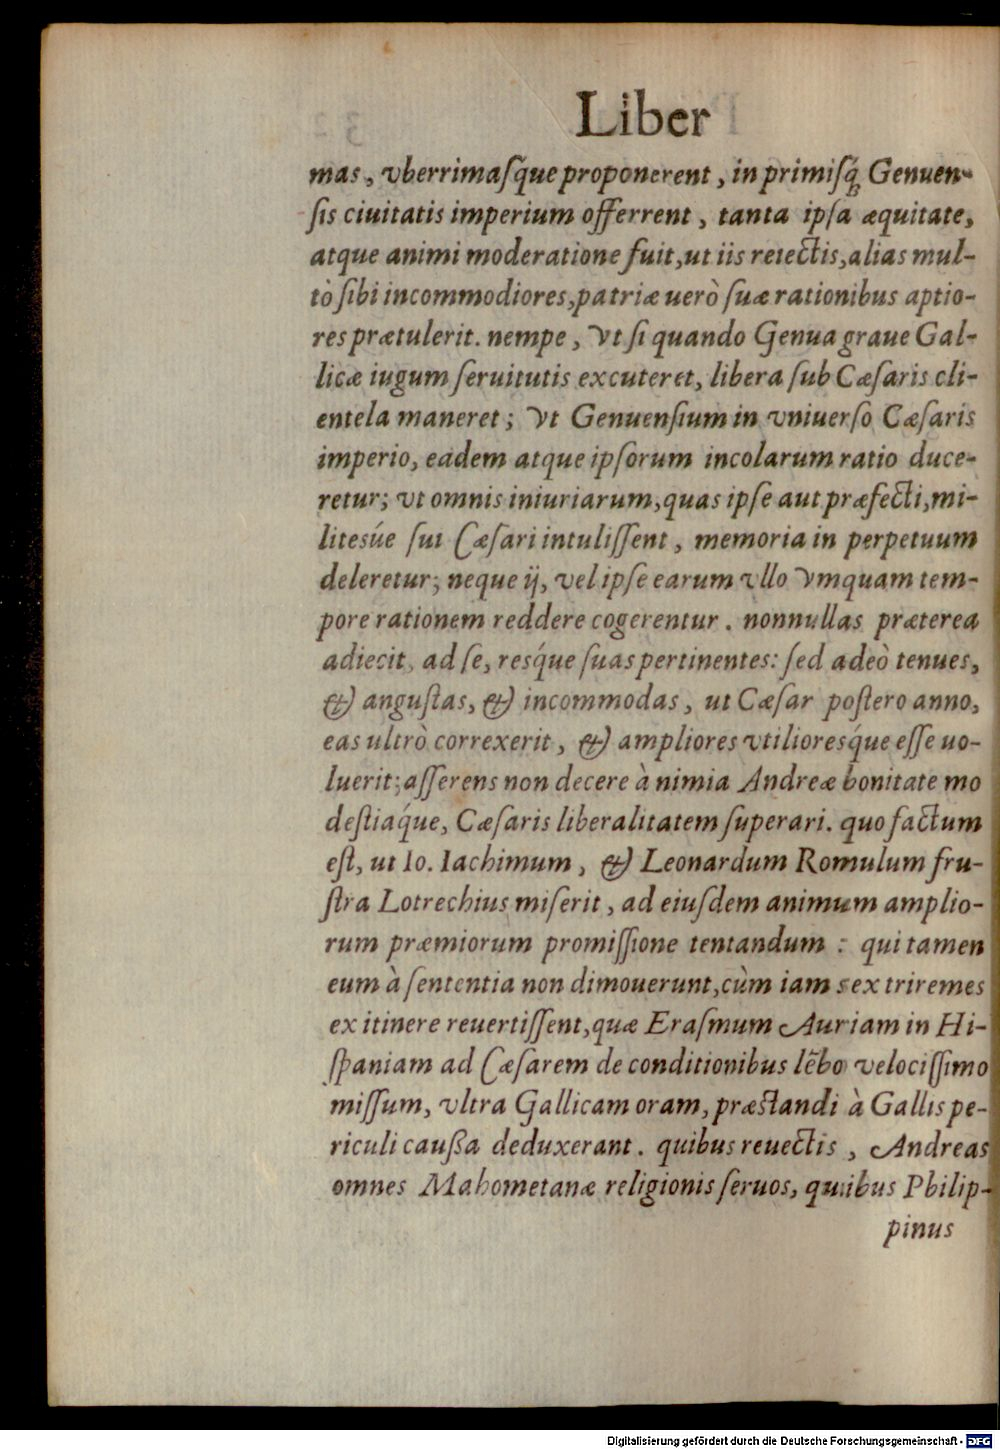 Liber
mas, vberrimaſq́ue proponerent, in primiſq́; Genuen-
ſis ciuitatis imperium offerrent, tanta ipſa æquitate,
atque animi moderatione fuit, ut iis reiectis, alias mul-
tò ſibi incommodiores, patriæ uerò ſuæ rationibus aptio-
res prætulerit. nempe, Vt ſi quando Genua graue Gal-
licæ iugum ſeruitutis excuteret, libera ſub Cæſaris cli-
entela maneret; Vt Genuenſium in vniuerſo Cæſaris
imperio, eadem atque ipſorum incolarum ratio duce-
retur; vt omnis iniuriarum, quas ipſe aut præfecti, mi-
litesúe ſui Cæſari intuliſſent, memoria in perpetuum
deleretur; neque ij, vel ipſe earum vllo Vmquam tem-
pore rationem reddere cogerentur. nonnullas præterea
adiecit, ad ſe, resq́ue ſuas pertinentes: ſed adeò tenues,
& anguſtas, & incommodas, ut Cæſar poſtero anno,
eas ultrò correxerit, & ampliores vtilioresq́ue eſſe uo-
luerit; aſſerens non decere à nimia Andreæ bonitate mo
deſtiaq́ue, Cæſaris liberalitatem ſuperari. quo factum
eſt, ut Io. Iachimum, & Leonardum Romulum fru-
ſtra Lotrechius miſerit, ad eiuſdem animum amplio-
rum præmiorum promiſſione tentandum : qui tamen
eum à ſententia non dimouerunt, cùm iam sex triremes
ex itinere reuertiſſent, quæ Eraſmum Auriam in Hi-
ſpaniam ad Cæſarem de conditionibus lẽbo velociſſimo
miſſum, vltra Gallicam oram, præstandi à Gallis pe-
riculi cauſſa deduxerant. quibus reuectis, Andreas
omnes Mahometanæ religionis ſeruos, quibus Philip-
pinus
Digitalisierung gefördert durch die Deutsche Forschungsgemeinschaft - DFG